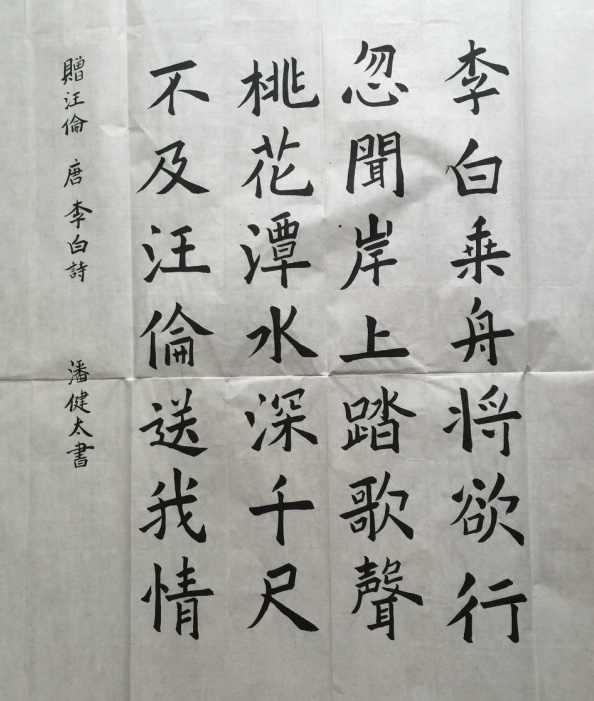 李白乗舟将欲行
忽聞岸上踏歌聲
桃花潭水深千尺
不及汪倫送我情
贈汪倫 唐 李白詩 潘健太書